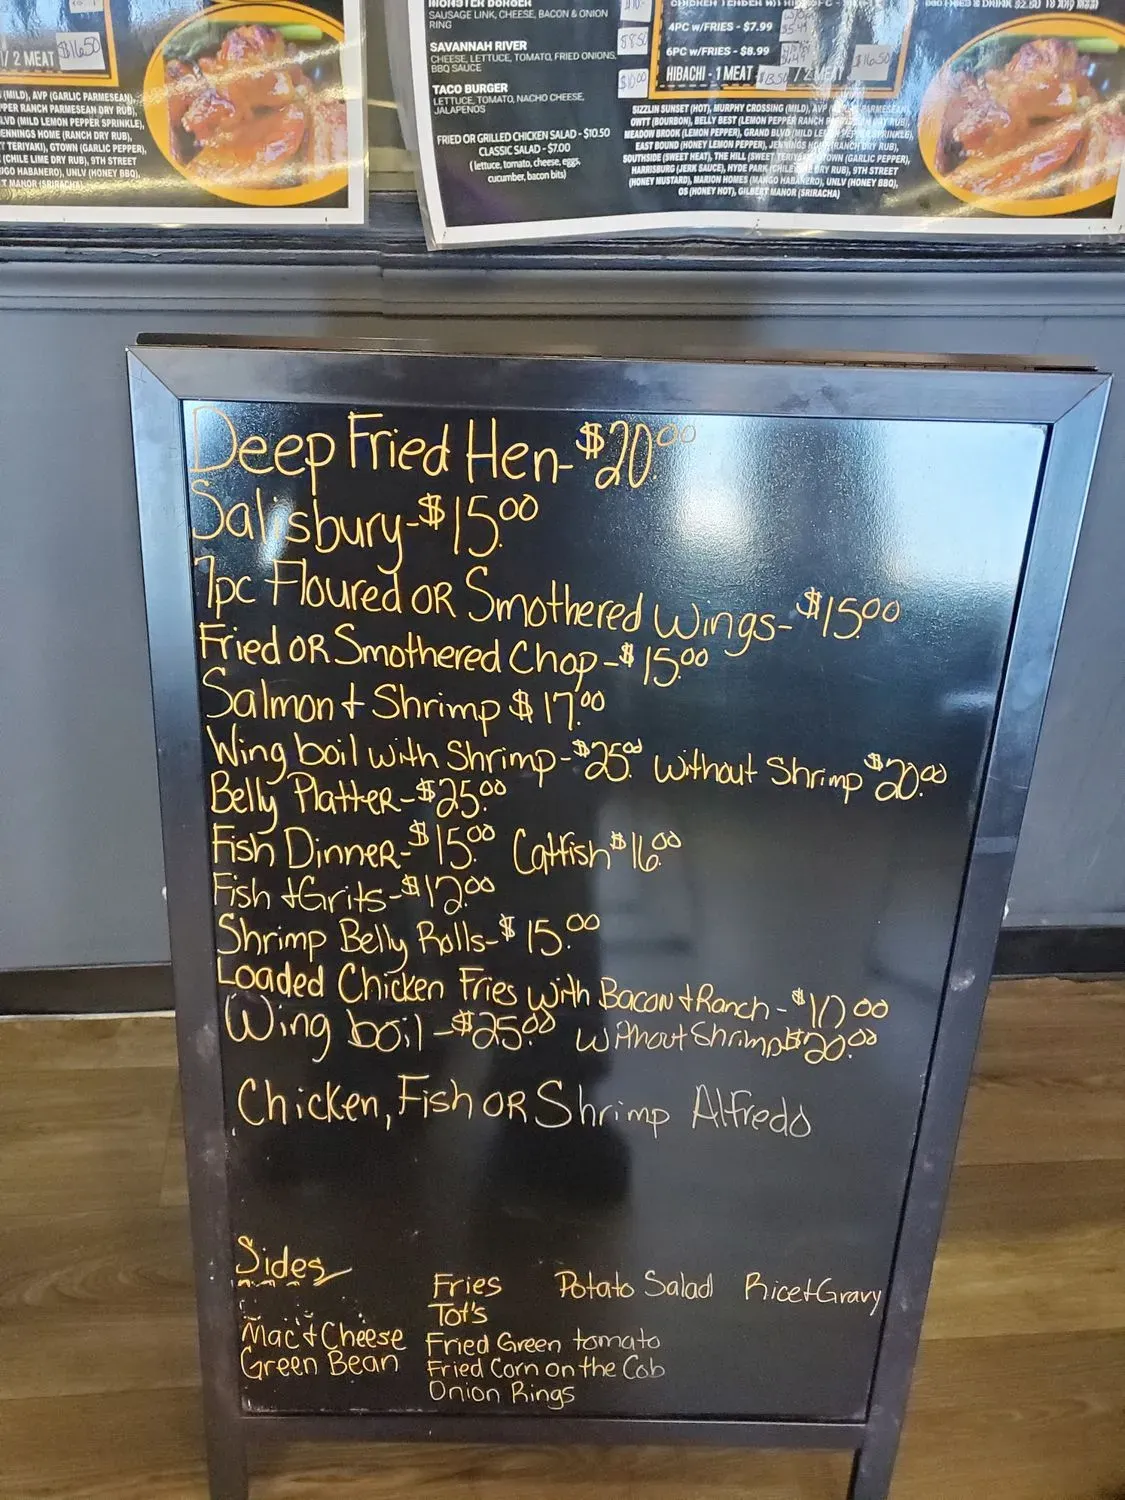 / 2 MEAT $16.50
(MILD), AVP (GARLIC PARMESEAN),
PER RANCH PARMESEAN DRY RUB),
LVD (MILD LEMON PEPPER SPRINKLE),
ENNINGS HOME (RANCH DRY RUB),
T TERIYAKI), GTOWN (GARLIC PEPPER),
(CHILE LIME DRY RUB), 9TH STREET
GO HABANERO), UNLV (HONEY BBQ),
T MANOR (SRIRACHA)
MONSTER BURGER
SAUSAGE LINK, CHEESE, BACON & ONION
RING
SAVANNAH RIVER
CHEESE, LETTUCE, TOMATO, FRIED ONIONS,
BBQ SAUCE
$8.50
TACO BURGER
LETTUCE, TOMATO, NACHO CHEESE,
JALAPENOS
$10.00
FRIED OR GRILLED CHICKEN SALAD - $10.50
CLASSIC SALAD - $7.00
(lettuce, tomato, cheese, eggs,
cucumber, bacon bits)
4PC w/FRIES - $7.99
6PC w/FRIES - $8.99
HIBACHI - 1 MEAT $13.50 / 2 MEAT $16.50
SIZZLIN SUNSET (HOT), MURPHY CROSSING (MILD), AVP PARMESEAN
OWTT (BOURBON), BELLY BEST (LEMON PEPPER RANCH DRY RUB),
MEADOW BROOK (LEMON PEPPER), GRAND BLVD (MILD LEMON PEPPER SPRINKLE),
EAST BOUND (HONEY LEMON PEPPER), JENNINGS HOME (RANCH DRY RUB),
SOUTHSIDE (SWEET HEAT), THE HILL (SWEET TERIYAKI), GTOWN (GARLIC PEPPER),
HARRISBURG (JERK SAUCE), HYDE PARK (CHILE LIME DRY RUB), 9TH STREET
(HONEY MUSTARD), MARION HOMES (MANGO HABANERO), UNLV (HONEY BBQ),
OS (HONEY HOT), GILBERT MANOR (SRIRACHA)
Deep Fried Hen-$20.00
Salisbury-$15.00
7pc Floured OR Smothered Wings-$15.00
Fried OR Smothered Chop-$15.00
Salmon + Shrimp $17.00
Wing boil with Shrimp-$25.00 without Shrimp $20.00
Belly Platter-$25.00
Fish Dinner-$15.00 Catfish $16.00
Fish + Grits-$12.00
Shrimp Belly Rolls-$15.00
Loaded Chicken Fries with Bacon + Ranch-$10.00
Wing boil-$25.00 without Shrimp $20.00
Chicken, Fish OR Shrimp Alfredo
Sides
Fries Potato Salad Rice + Gravy
Tot's
Mac + Cheese Fried Green tomato
Green Bean Fried Corn on the Cob
Onion Rings